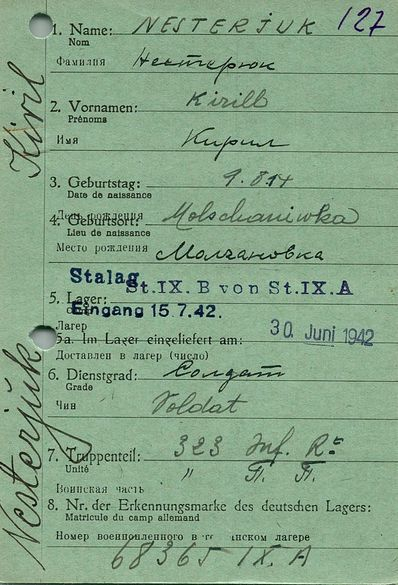 127
1. Name: NESTERJUK
Nom
Фамилия Нестерюк
2. Vornamen: Kirill
Prénoms
Имя Кирил
3. Geburtstag: 1.8.14
Date de naissance
День рождения
4. Geburtsort: Molschaniwka
Lieu de naissance
Место рождения Молчановка
Stalag
St.IX. B von St.IX.A
5. Lager:
Eingang 15.7.42.
Лагер
30. Juni 1942
5a. Im Lager eingeliefert am:
Доставлен в лагер (число)
6. Dienstgrad: Солдат
Grade
Чин Soldat
7. Truppenteil: 323 Inf. R.
Unité " П. П.
Воинская часть
8. Nr. der Erkennungsmarke des deutschen Lagers:
Matricule du camp allemand
Номер военнопленного в германском лагере
68365 IX. A
Nesterjuk Kiril